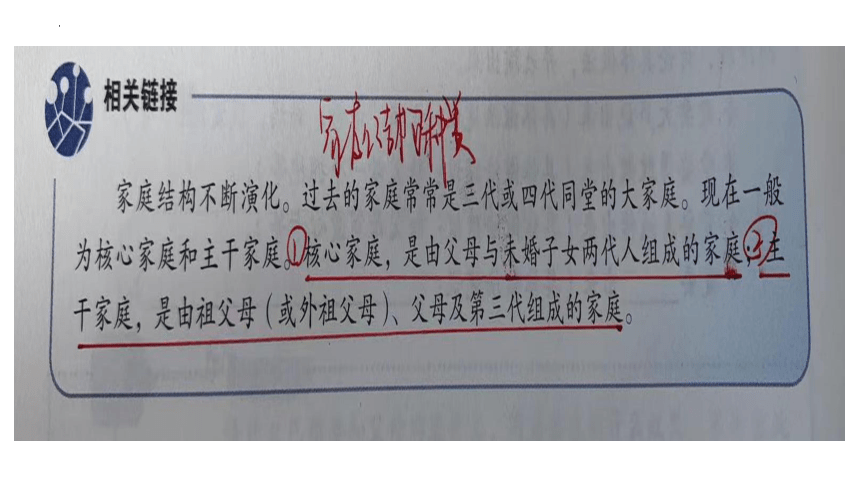 相关链接
家庭结构种类
家庭结构不断演化。过去的家庭常常是三代或四代同堂的大家庭。现在一般
为核心家庭和主干家庭。①核心家庭，是由父母与未婚子女两代人组成的家庭；②主
干家庭，是由祖父母（或外祖父母）、父母及第三代组成的家庭。